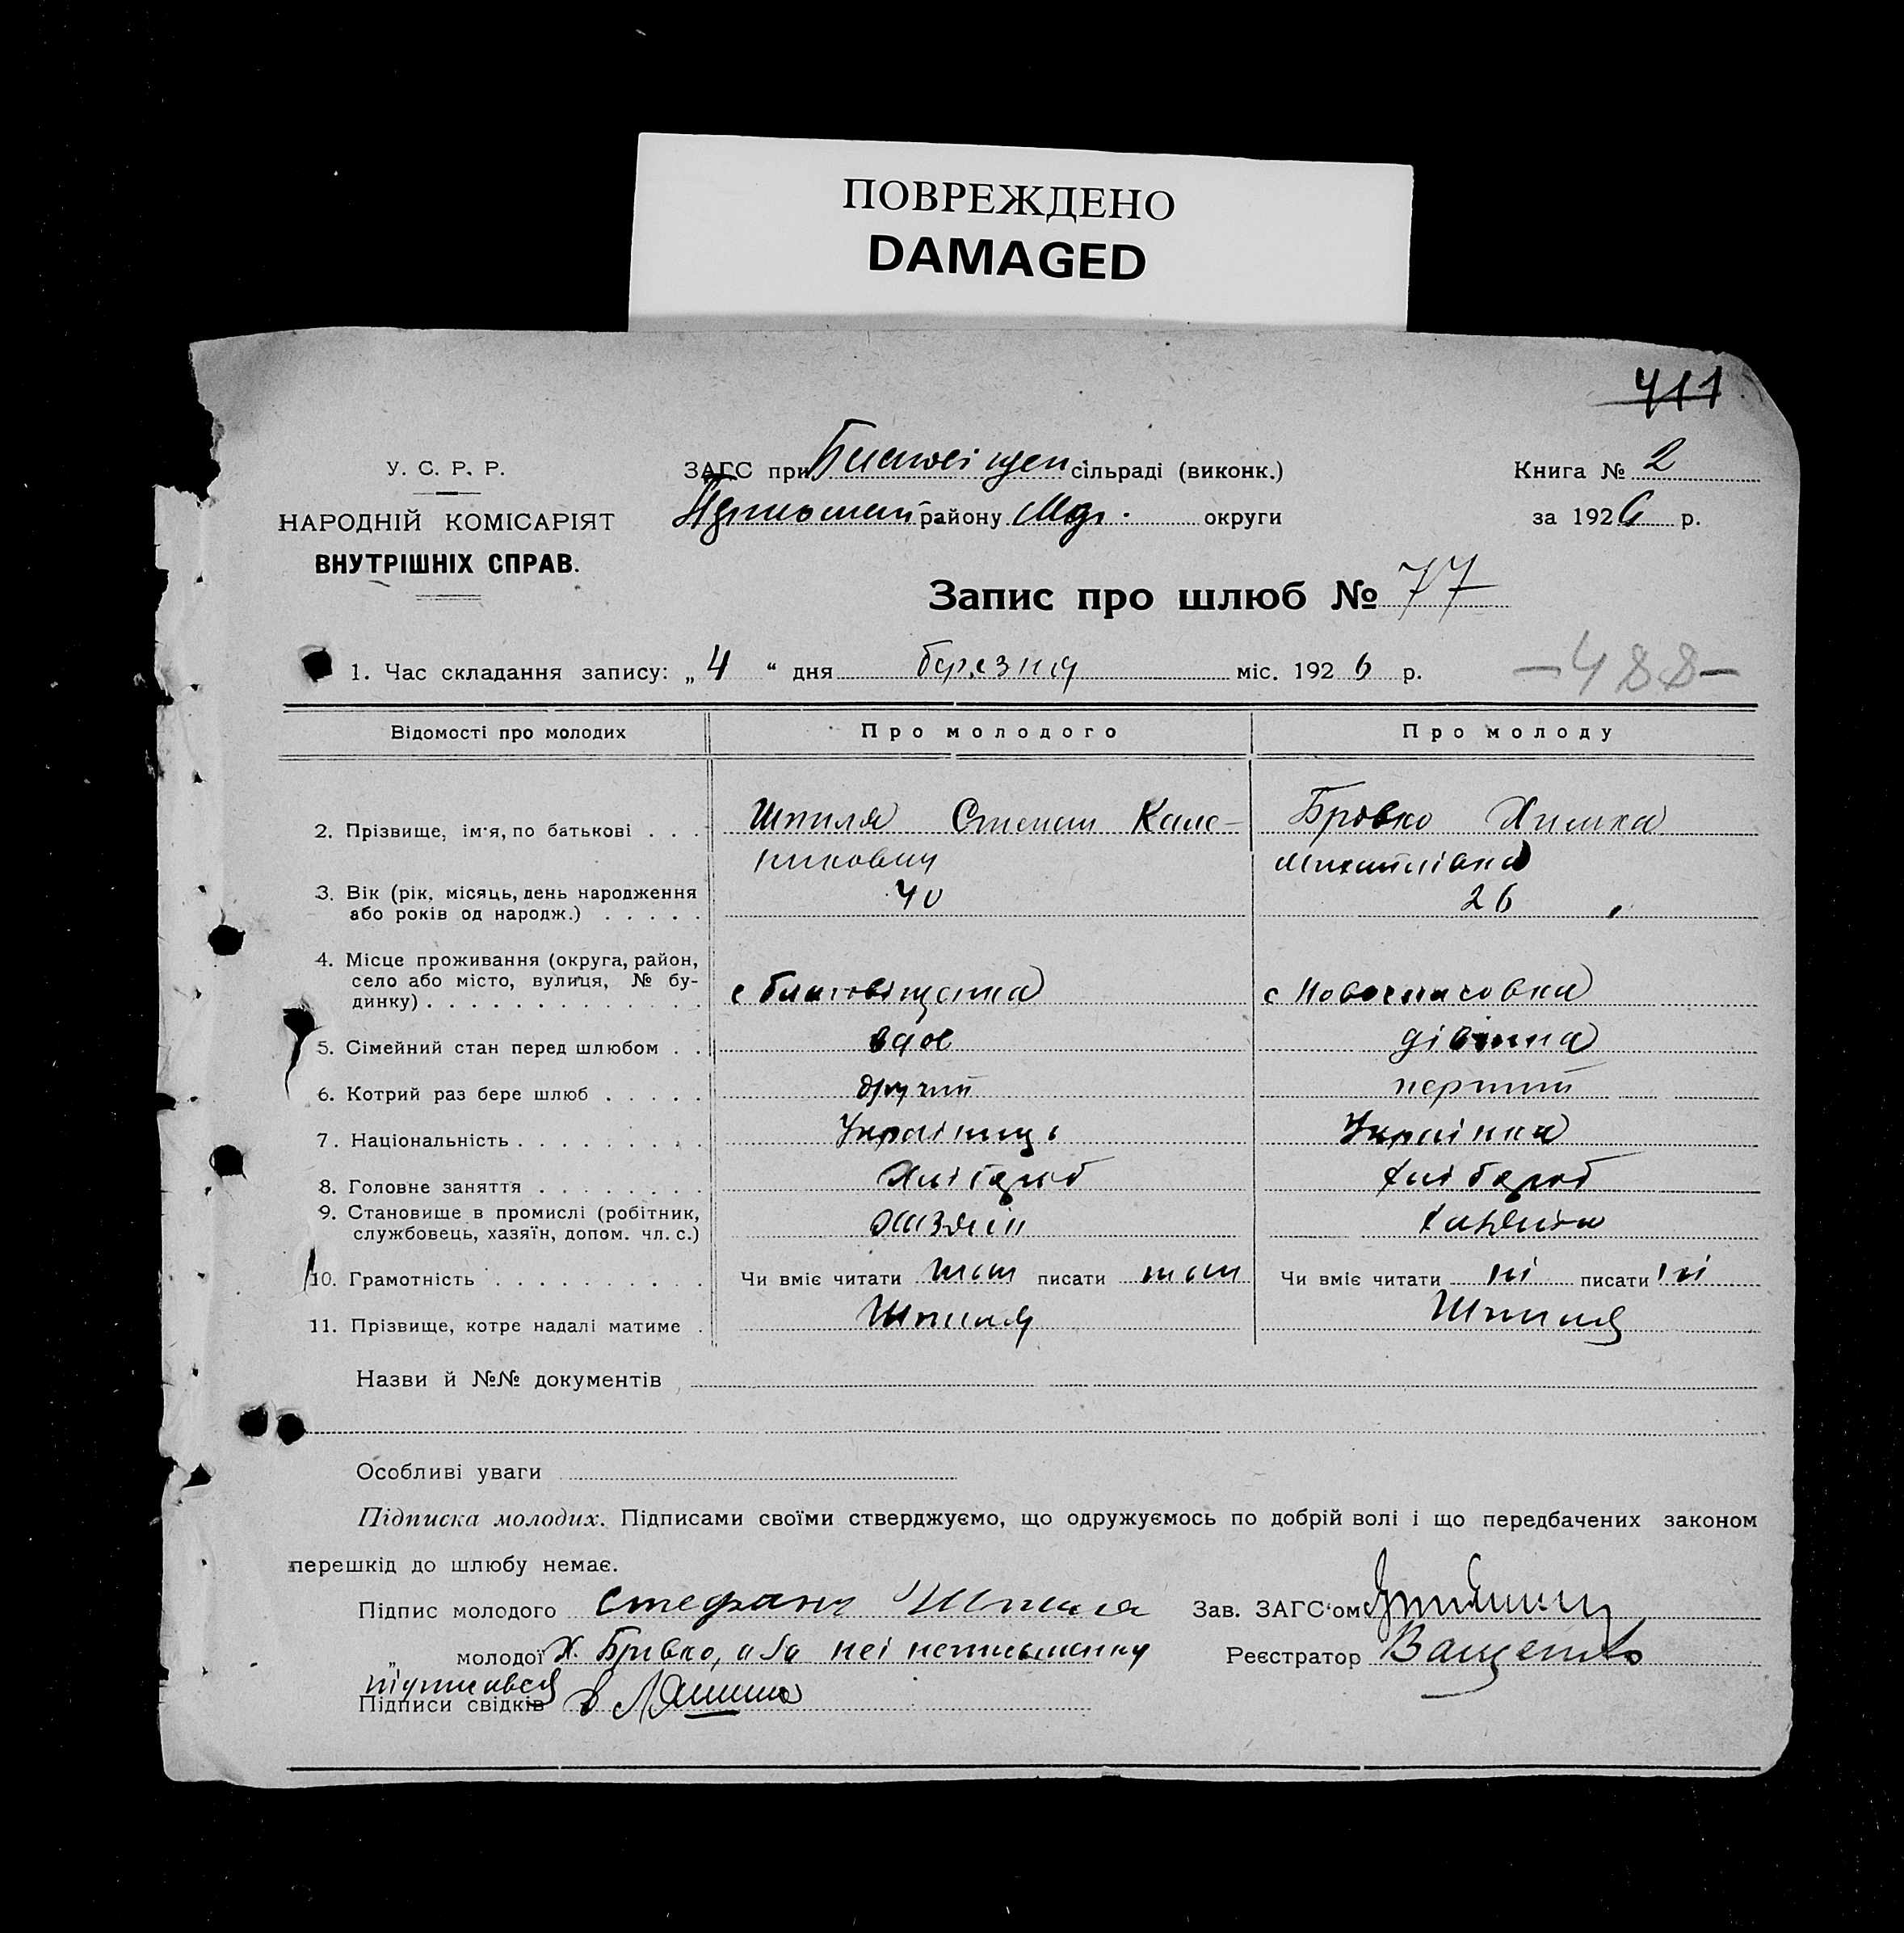 ПОВРЕЖДЕНО
DAMAGED
411
У. С. Р. Р.
НАРОДНІЙ КОМІСАРІЯТ
ВНУТРІШНІХ СПРАВ.
ЗАГС при Благовіщен сільраді (виконк.)
району округи
Книга № 2
за 1926 р.
Запис про шлюб № 77
1. Час складання запису: „ 4 “ дня березня міс. 1926 р.
-488-
Відомості про молодих Про молодого Про молоду
2. Прізвище, ім'я, по батькові . . . Шпиля Степан Кале- Бровко Химка
никович Михайлівна
3. Вік (рік, місяць, день народження
або років од народж.) . . . . . 40 26
4. Місце проживання (округа, район,
село або місто, вулиця, № бу-
динку) . . . . . . . . . . . . . с Благовіщенка с Новоспасовка
5. Сімейний стан перед шлюбом . . вдов дівчина
6. Котрий раз бере шлюб . . . . . другий перший
7. Національність . . . . . . . . . Українець Українка
8. Головне заняття . . . . . . . . Хлібороб хлібороб
9. Становище в промислі (робітник,
службовець, хазяїн, допом. чл. с.) хазяїн
10. Грамотність . . . . . . . . . . Чи вміє читати так писати так Чи вміє читати ні писати ні
11. Прізвище, котре надалі матиме . Шпиля Шпиля
Назви й №№ документів
Особливі уваги
Підписка молодих. Підписами своїми стверджуємо, що одружуємось по добрій волі і що передбачених законом
перешкід до шлюбу немає.
Підпис молодого Стефанъ Шпиля Зав. ЗАГС'ом
„ молодої Х. Бровко, а за неї неписьменну Реєстратор Ващенко
підписався
Підписи свідків